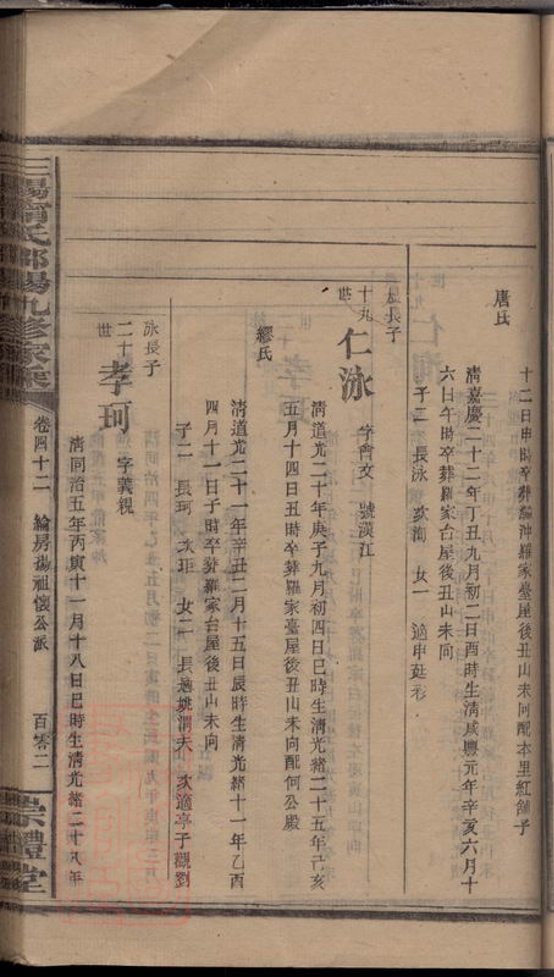 十二日申時卒葬編沖羅家臺屋後丑山未向配本里紅舖子
唐氏
清嘉慶二十二年丁丑九月初二日酉時生清咸豐元年辛亥六月十
六日午時卒葬羅家台屋後丑山未向
子二 長泳 次洵 女一 適申
長子
十九世
仁泳 字會文 號漢江
清道光二十年庚子九月初四日巳時生清光緒二十五年己亥
五月十四日丑時卒葬羅家臺屋後丑山未向配何公殿
繆氏
清道光二十一年辛丑二月十五日辰時生清光緒十一年乙酉
四月十一日子時卒葬羅家台屋後丑山未向
子二 長珂 次 女二 長適姚渭夫 次適亭子觀劉
泳長子
二十世
孝珂 字義視
清同治五年丙寅十一月十八日巳時生清光緒二十八年
三陽 氏邵陽九修家乘
卷四十二 綸房揚祖懷公派 百零二
崇禮堂